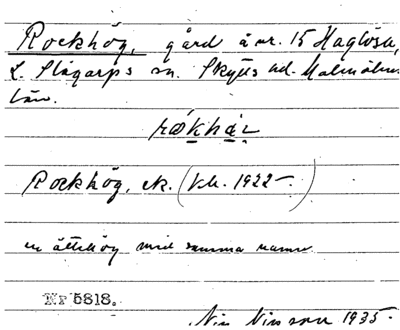 Rockhög, gård å nr. 15 Haglösa,
L. Slågarps sn. Skytts hd. Malmöhus
län.
Rockhög, ek. (k.b. 1922-)
en ättehög med samma namn
Nr 5818.
Nils Nilsson 1935.